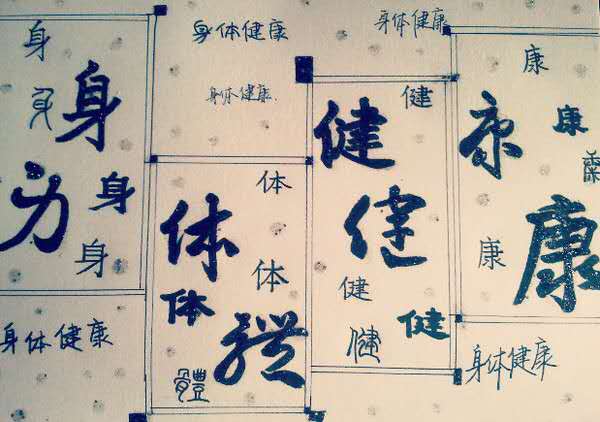 身
身
身
身
身
身
身体健康
身体健康
身体健康
体
体
体
体
體
體
身体健康
健
健
健
健
健
健
康
康
康
康
康
康
身体健康